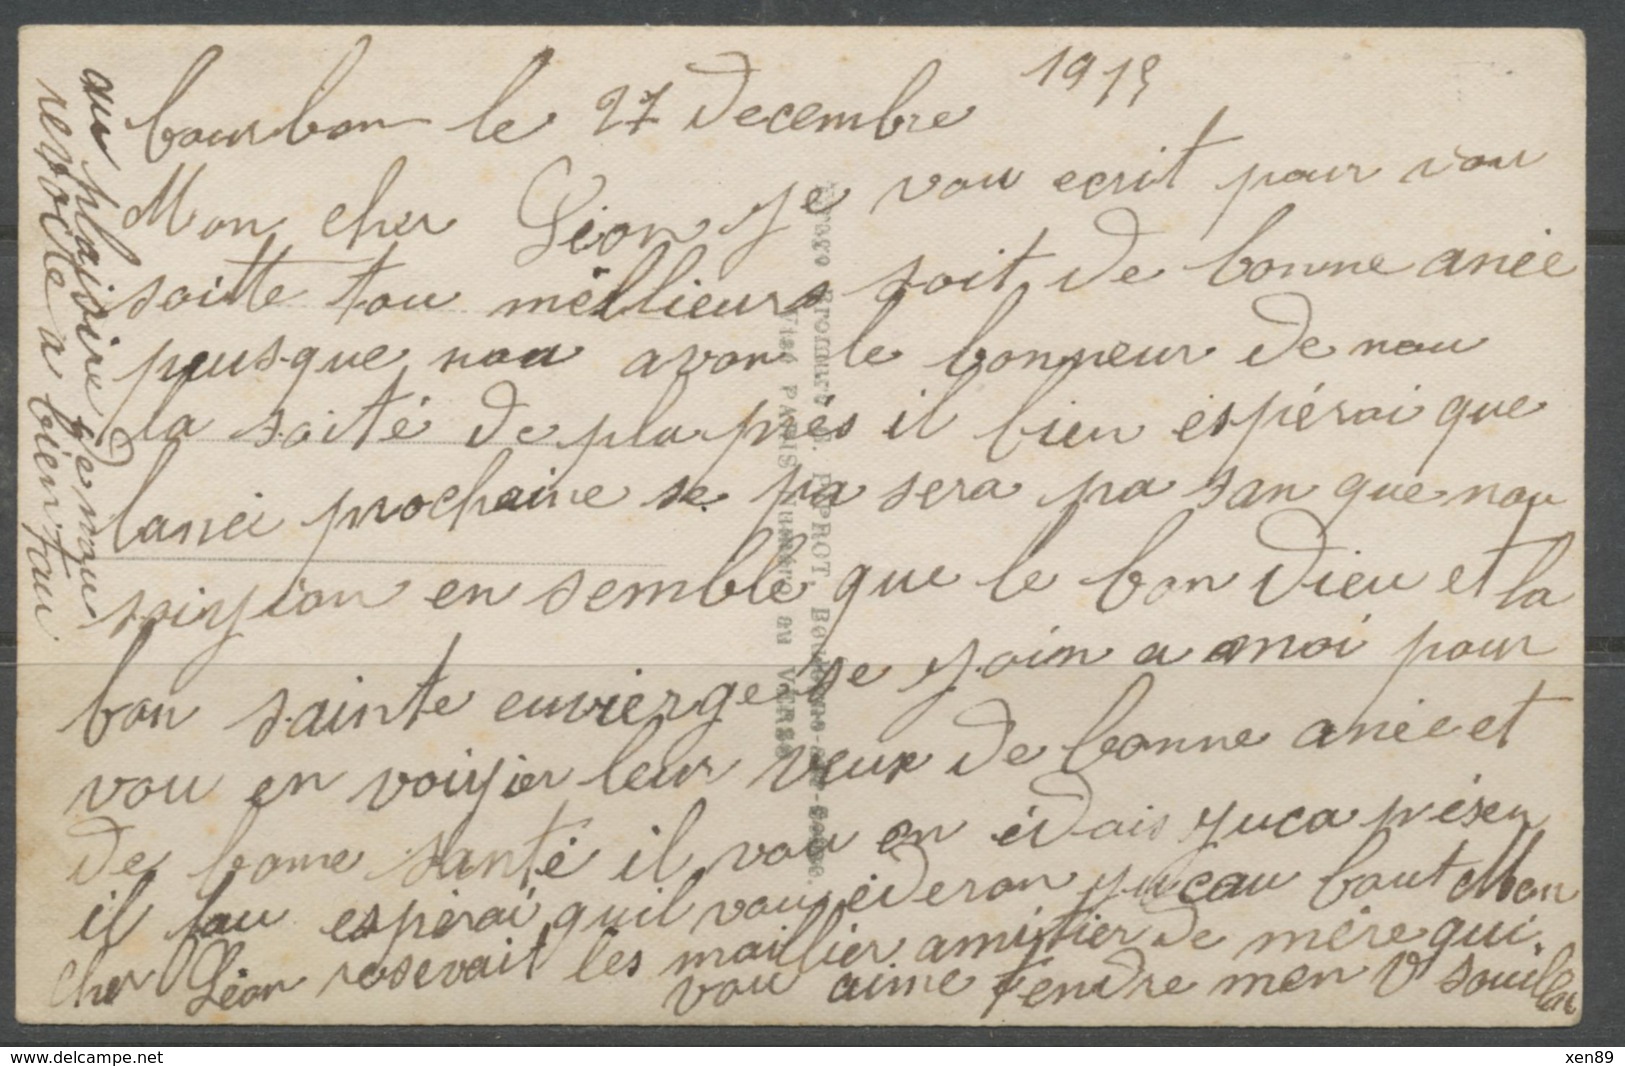 bourbon le 27 decembre 1915
Mon cher Léon je vou ecrit pour vou
soitte tou mellieurs soit de bonne anée
pusque nou avon le bonneur de nou
la soité de plu près il bien espérai que
lanée prochaine se pa sera pa san que nou
soiyion en semble que le bon dieu et la
bon sainte euvierge se join a moi pour
vou en voiyier leur veux de bonne aniee et
de bonne santé il vou en édais yuca présen
il fau espérai quil vou éderon yucau bout Mon
cher Léon resevait les maillier amitier de mère qui
vou aime tendre men V souillou
au plaisire de nou
revoire a bien tau
Photo PROT, Boulogne-sur-
Visé PARIS Numéro au VERSO
xen89